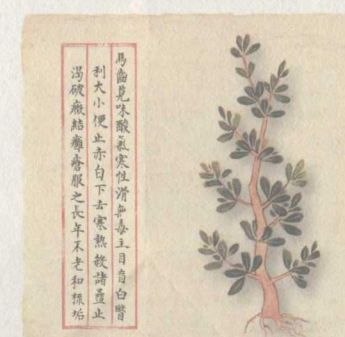 馬齒莧味酸氣寒性滑無毒主目盲白瞖
利大小便止赤白下去寒熱殺諸蟲止
渴破癥結癰瘡服之長年不老和梳垢